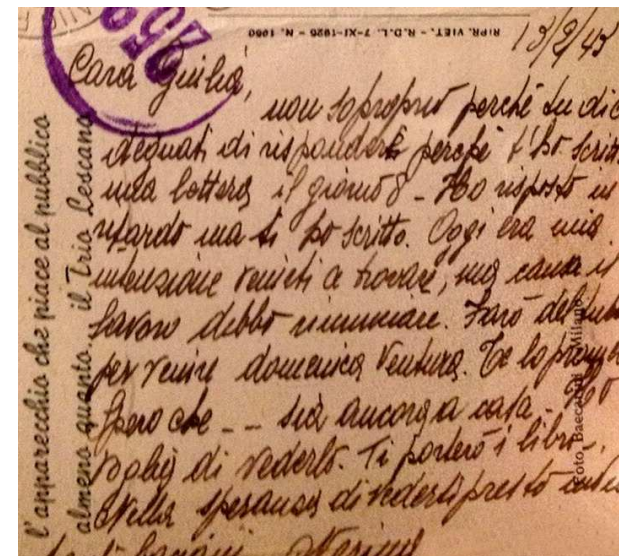 RIPR. VIET. - R.D.L. 7-XI-1926 - N. 1960
13/2/43
259
Cara Giulia,
non so proprio perché tu dic
degnati di risponderti perché t'ho scritt
una lettera il giorno 8 - Ho risposto in
ritardo ma ti ho scritto. Oggi era mia
intenzione venirti a trovare, ma causa il
lavoro debbo rinunciare. Farò del tutto
per venire domenica ventura. Te lo prom
Spero che - - sia ancora a casa - Ho
voglia di vederlo. Ti porterò i libri -
Nella speranza di vederti presto
l'apparecchio che piace al pubblico
almeno quanto il Trio Lescano
Foto Baccarini Milano